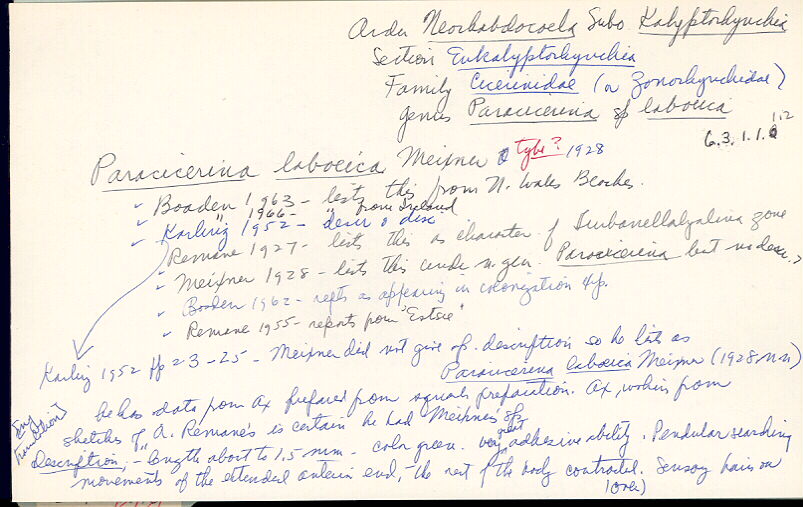 Order Neorhabdocoela Subo Kalyptorhynchia
Section Eukalyptorhynchia
Family Cicerinidae (or Zonorhynchidae)
genus Paracicerina sp laboeica
112
6.3.1.1.
Paracicerina laboeica Meixner type? 1928
✓ Boaden 1963 - lists this from N. Wales Beaches.
" 1966 - " from Ireland
✓ Karling 1952 - descr & disc
Remane 1927 - lists this as character of Turbanellahyalina zone
✓ Meixner 1928 - lists this under n. gen. Paracicerina but no descr.
✓ Boaden 1962 - repts as appearing in colonization exp.
✓ Remane 1955 - reports from "Estsie"
Karling 1952 pp 23-25 - Meixner did not give sp. description so he lists as
Paracicerina laboeica Meixner (1928 n.n)
he has data from Ax prepared from squash preparation. Ax, working from
sketches of A. Remane's is certain he had Meixner's sp.
(my translation)
Description, - "length about to 1.5 mm - color green. very great adhesive ability. Pendular searching
movements of the extended anterior end, - the rest of the body contracted. Sensory hairs on
(over)